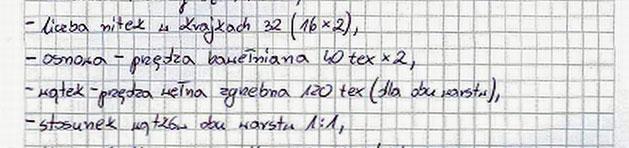 - liczba nitek w krajkach 32 (16 × 2),
- osnowa - przędza bawełniana 40 tex × 2,
- wątek - przędza wełna zgrzebna 120 tex (dla obu warstw),
- stosunek wątków obu warstw 1:1,